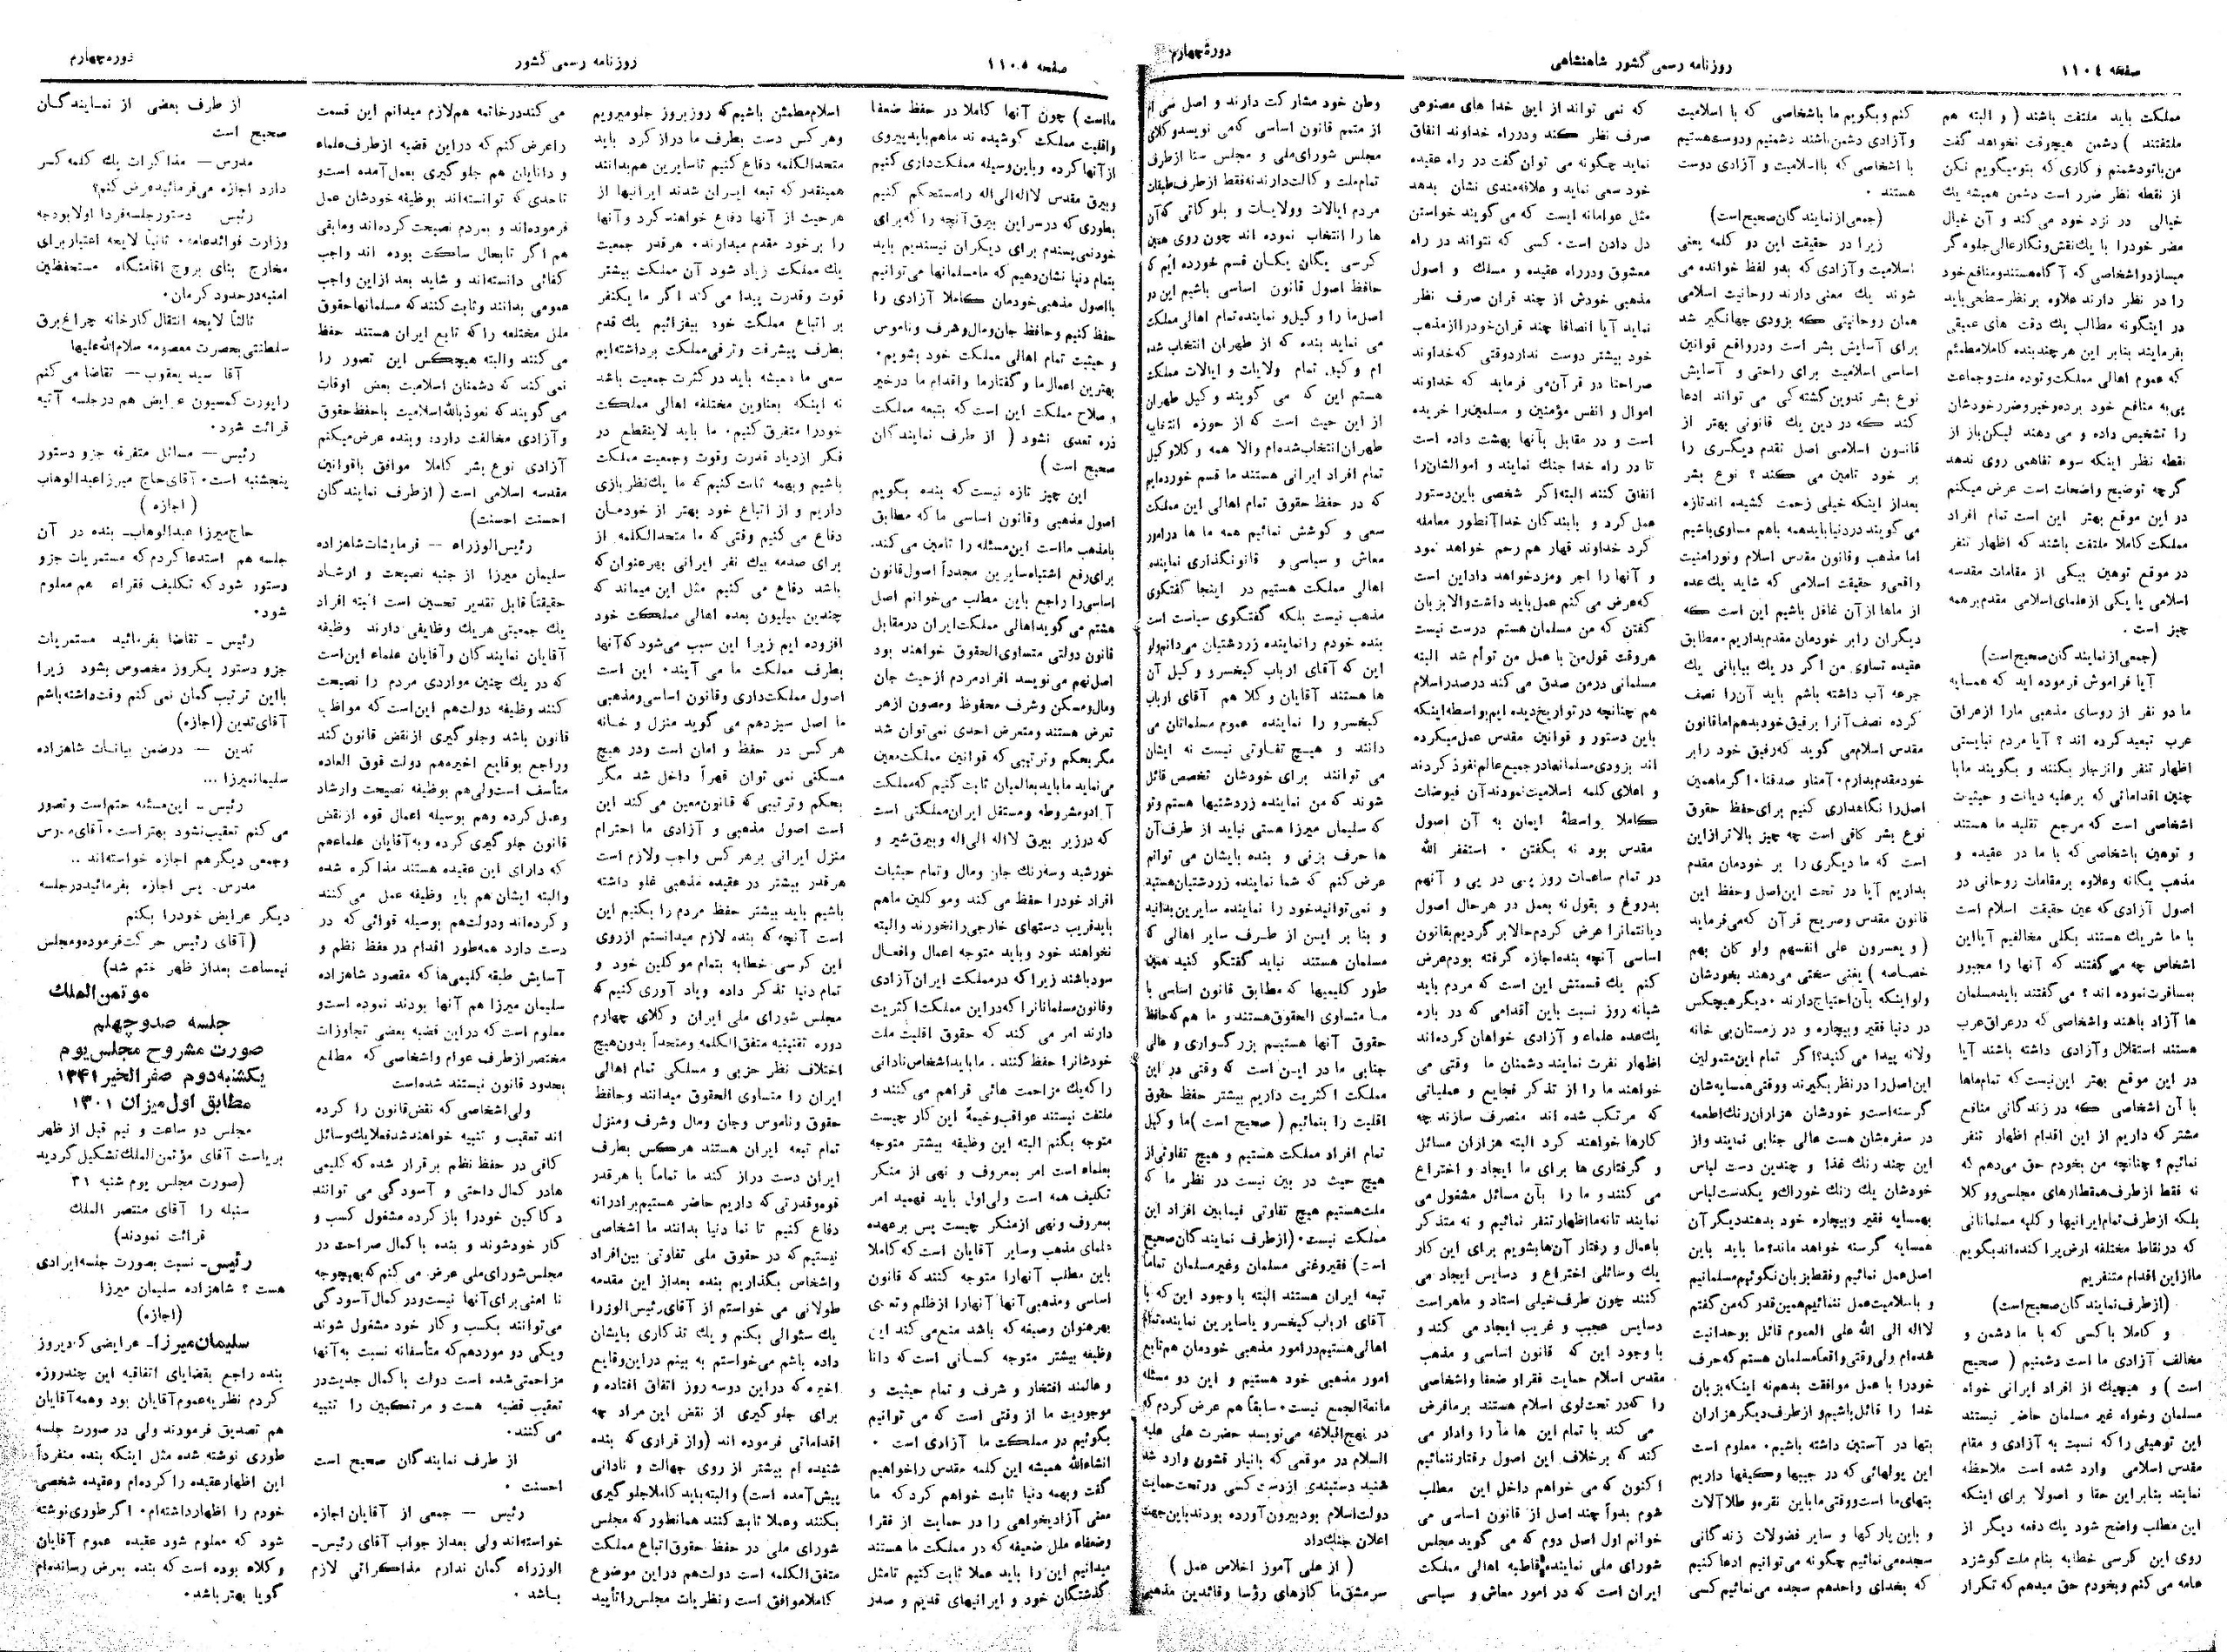 صفحه ١١٠٤
روزنامه رسمی کشور شاهنشاهی
دورهٔ چهارم
مملکت باید ملتفت باشند ( و البته هم
ملتفتند ) دشمن هیچوقت نخواهد گفت
من با تو دشمنم و کاری که بتو میگویم نکن
از نقطه نظر ضرر است دشمن همیشه یك
خیالی در نزد خود می کند و آن خیال
مضر خود را با یك نقش و نگار عالی جلوه گر
میسازد و اشخاصی که آگاه هستند و منافع خود
را در نظر دارند علاوه بر نظر سطحی باید
در اینگونه مطالب یك دقت های عمیقی
بفرمایند بنابر این هر چند بنده کاملا مطمئنم
که عموم اهالی مملکت و توده ملت و جماعت
پی به منافع خود برده و خیر و ضرر خودشان
را تشخیص داده و می دهند لیکن باز از
نقطه نظر اینکه سوء تفاهمی روی ندهد
گرچه توضیح واضحات است عرض میکنم
در این موقع بهتر این است تمام افراد
مملکت کاملا ملتفت باشند که اظهار تنفر
در موقع توهین بیکی از مقامات مقدسه
اسلامی یا یکی از علمای اسلامی مقدم بر همه
چیز است .
(جمعی از نمایندگان صحیح است)
آیا فراموش فرموده اید که همسایه
ما دو نفر از روسای مذهبی ما را از عراق
عرب تبعید کرده اند ؟ آیا مردم نبایستی
اظهار تنفر و انزجار بکنند و بگویند ما با
چنین اقداماتی که بر علیه دیانت و حیثیات
اشخاصی است که مرجع تقلید ما هستند
و توهین باشخاصی که با ما در عقیده و
مذهب یگانه و علاوه بر مقامات روحانی در
اصول آزادی که عین حقیقت اسلام است
با ما شریك هستند بکلی مخالفیم آیا این
اشخاص چه می گفتند که آنها را مجبور
بمسافرت نموده اند ؟ می گفتند باید مسلمان
ها آزاد باشند و اشخاصی که در عراق عرب
هستند استقلال و آزادی داشته باشند آیا
در این موقع بهتر این نیست که تمام ماها
با آن اشخاصی که در زندگانی منافع
مشترک داریم از این اقدام اظهار تنفر
نمائیم ؟ چنانچه من بخودم حق می دهم که
نه فقط از طرف همقطارهای مجلسی و وکلا
بلکه از طرف تمام ایرانیها و کلیه مسلمانانی
که در نقاط مختلفه ارض پراکنده اند بگویم
ما از این اقدام متنفریم
(از طرف نمایندگان صحیح است)
و کاملا با کسی که با ما دشمن و
مخالف آزادی ما است دشمنیم ( صحیح
است ) و هیچیك از افراد ایرانی خواه
مسلمان و خواه غیر مسلمان حاضر نیستند
این توهینی را که نسبت به آزادی و مقام
مقدس اسلامی وارد شده است ملاحظه
نمایند بنابر این حقا و اصولا برای اینکه
این مطلب واضح شود یك دفعه دیگر از
روی این کرسی خطابه بنام ملت گوشزد
عامه می کنم و بخودم حق میدهم که تکرار
کنم و بگویم ما باشخاصی که با اسلامیت
و آزادی دشمن باشند دشمنیم و دوست هستیم
با اشخاصی که با اسلامیت و آزادی دوست
هستند .
(جمعی از نمایندگان صحیح است)
زیرا در حقیقت این دو کلمه یعنی
اسلامیت و آزادی که بدو لفظ خوانده می
شوند یك معنی دارند روحانیت اسلامی
همان روحانیتی که بزودی جهانگیر شد
برای آسایش بشر است و در واقع قوانین
اساسی اسلامیت برای راحتی و آسایش
نوع بشر تدوین گشته کی می تواند ادعا
کند که در دین یك قانونی بهتر از
قانون اسلامی اصل تقدم دیگری را
بر خود تامین می کند ؟ نوع بشر
بعد از اینکه خیلی زحمت کشیده اند تازه
می گویند در دنیا باید همه باهم مساوی باشیم
اما مذهب و قانون مقدس اسلام و نورانیت
واقعی و حقیقت اسلامی که شاید یك عده
از ماها از آن غافل باشیم این است که
دیگران را بر خودمان مقدم بداریم . مطابق
عقیده تساوی من اگر در یك بیابانی یك
جرعه آب داشته باشم باید آن را نصف
کرده نصف آنرا برفیق خود بدهم اما قانون
مقدس اسلام می گوید که رفیق خود را بر
خود مقدم بدارم . آمنا و صدقنا . اگر ما همین
اصل را نگاهداری کنیم برای حفظ حقوق
نوع بشر کافی است چه چیز بالاتر از این
است که ما دیگری را بر خودمان مقدم
بداریم آیا در تحت این اصل و حفظ این
قانون مقدس و صریح قرآن که می فرماید
( و یوسرون علی انفسهم ولو کان بهم
خصاصه ) یعنی سختی می دهند بخودشان
ولو اینکه بآن احتیاج دارند . دیگر هیچکس
در دنیا فقیر و بیچاره و در زمستان بی خانه
و لانه پیدا می کنید؟ اگر تمام این متمولین
این اصل را در نظر بگیرند و وقتی همسایه شان
گرسنه است و خودشان هزاران رنگ اطعمه
در سفره شان هست عالی جنابی نمایند و از
این چند رنگ غذا و چندین دست لباس
خودشان یك رنگ خوراك و یکدست لباس
بهمسایه فقیر و بیچاره خود بدهند دیگر آن
همسایه گرسنه خواهد ماند؟ ما باید باین
اصل عمل نمائیم و فقط بزبان نگوئیم مسلمانیم
و باسلامیت عمل ننمائیم همین قدر که من گفتم
لا اله الی الله علی العموم قائل بوحدانیت
شده ام ولی وقتی واقعاً مسلمان هستم که حرف
خود را با عمل موافقت بدهم نه اینکه بزبان
خدا را قائل باشیم و از طرف دیگر هزاران
بتها در آستین داشته باشیم . معلوم است
این پولهائی که در جیبها و کیفها داریم
بتهای ما است و وقتی ما باین نقره و طلا آلات
و باین پارکها و سایر فضولات زندگانی
سجده می نمائیم چگونه می توانیم ادعا کنیم
که بخدای واحد هم سجده می نمائیم کسی
که نمی تواند از این خدا های مصنوعی
صرف نظر کند و در راه خداوند انفاق
نماید چگونه می توان گفت در راه عقیده
خود سعی نماید و علاقه مندی نشان بدهد
مثل عوامانه ایست که می گویند خواستن
دل دادن است . کسی که نتواند در راه
معشوق و در راه عقیده و مسلك و اصول
مذهبی خودش از چند قران صرف نظر
نماید آیا انصافا چند قران خود را از مذهب
خود بیشتر دوست ندارد وقتی که خداوند
صراحتا در قرآن می فرماید که خداوند
اموال و انفس مؤمنین و مسلمین را خریده
است و در مقابل بآنها بهشت داده است
تا در راه خدا جنك نمایند و اموالشان را
انفاق کنند البته اگر شخصی باین دستور
عمل کرد و با بندگان خدا آنطور معامله
کرد خداوند قهار هم رحم خواهد نمود
و آنها را اجر و مزد خواهد داد این است
که عرض می کنم عمل باید داشت و الا بزبان
گفتن که من مسلمان هستم درست نیست
هر وقت قول من با عمل من توأم شد البته
مسلمانی در من صدق می کند در صدر اسلام
هم چنانچه در تواریخ دیده ایم بواسطه اینکه
باین دستور و قوانین مقدس عمل میکرده
اند بزودی مسلمانها در جمیع عالم نفوذ کردند
و اعلای کلمه اسلامیت نمودند آن فیوضات
کاملا بواسطهٔ ایمان به آن اصول
مقدس بود نه بگفتن . استغفر الله
در تمام ساعات روز پی در پی و آنهم
بدروغ و بقول نه بعمل در هر حال اصول
دیانتمانرا عرض کردم حالا بر گردیم بقانون
اساسی آنچه بنده اجازه گرفته بودم عرض
کنم یك قسمتش این است که مردم باید
شبانه روز نسبت باین اقدامی که در باره
یك عده علماء و آزادی خواهان کرده اند
اظهار نفرت نمایند دشمنان ما وقتی می
خواهند ما را از تذکر فجایع و عملیاتی
که مرتکب شده اند منصرف سازند چه
کارها خواهند کرد البته هزاران مسائل
و گرفتاری ها برای ما ایجاد و اختراع
می کنند و ما را بآن مسائل مشغول می
نمایند تا نه ما اظهار تنفر نمائیم و نه متذکر
باعمال و رفتار آنها بشویم برای این کار
یك وسائلی اختراع و دسایس ایجاد می
کنند چون طرف خیلی استاد و ماهر است
دسایس عجیب و غریب ایجاد می کند و
با وجود این که قانون اساسی و مذهب
مقدس اسلام حمایت فقرا و ضعفا و اشخاصی
را که در تحت لوی اسلام هستند بر ما فرض
می کند با تمام این ها ما را وادار می
کند که بر خلاف این اصول رفتار ننمائیم
اکنون که می خواهم داخل این مطلب
شوم بدواً چند اصل از قانون اساسی می
خوانم اول اصل دوم که می گوید مجلس
شورای ملی نماینده قاطبه اهالی مملکت
ایران است که در امور معاش و سیاسی
وطن خود مشارکت دارند و اصل سی ام
از متمم قانون اساسی که می نویسد وکلای
مجلس شورای ملی و مجلس سنا از طرف
تمام ملت وکالت دارند نه فقط از طرف طبقات
مردم ایالات و ولایات و بلوکاتی که آن
ها را انتخاب نموده اند چون روی همین
کرسی یگان یکان قسم خورده ایم که
حافظ اصول قانون اساسی باشیم این دو
اصل ما را وکیل و نماینده تمام اهالی مملکت
می نماید بنده که از طهران انتخاب شده
ام وکیل تمام ولایات و ایالات مملکت
هستم این که می گویند وکیل طهران
از این حیث است که از حوزه انتخابیه
طهران انتخاب شده ام والا همه وکلا وکیل
تمام افراد ایرانی هستند ما قسم خورده ایم
که در حفظ حقوق تمام اهالی این مملکت
سعی و کوشش نمائیم همه ما ها در امور
معاش و سیاسی و قانونگذاری نماینده
اهالی مملکت هستیم در اینجا گفتگوی
مذهب نیست بلکه گفتگوی سیاست است
بنده خودم را نماینده زردشتیان می دانم ولو
این که آقای ارباب کیخسرو وکیل آن
ها هستند آقایان وکلا هم آقای ارباب
کیخسرو را نماینده عموم مسلمانان می
دانند و هیچ تفاوتی نیست نه ایشان
می توانند برای خودشان تخصص قائل
شوند که من نماینده زردشتیها هستم و تو
که سلیمان میرزا هستی نباید از طرف آن
ها حرف بزنی و بنده بایشان می توانم
عرض کنم که شما نماینده زردشتیان هستید
و نمی توانید خود را نماینده سایرین بدانید
و بنا بر این از طرف سایر اهالی که
مسلمان هستند نباید گفتگو کنید همین
طور کلیمیها که مطابق قانون اساسی با
ما متساوی الحقوق هستند و ما هم که حافظ
حقوق آنها هستیم بزرگواری و عالی
جنابی ما در این است که وقتی در این
مملکت اکثریت داریم بیشتر حفظ حقوق
اقلیت را بنمائیم ( صحیح است ) ما وکیل
تمام افراد مملکت هستیم و هیچ تفاوتی از
هیچ حیث در بین نیست در نظر ما که
ملت هستیم هیچ تفاوتی فیمابین افراد این
مملکت نیست . (از طرف نمایندگان صحیح
است) فقیر و غنی مسلمان و غیر مسلمان تماماً
تبعه ایران هستند البته با وجود این که با
آقای ارباب کیخسرو یا سایرین نماینده تمام
اهالی هستیم در امور مذهبی خودمان هم تابع
امور مذهبی خود هستیم و این دو مسئله
مانعة الجمع نیست . سابقا هم عرض کردم که
در نهج البلاغه می نویسد حضرت علی علیه
السلام در موقعی که بانبار قشون وارد شد
شنید دستبندی از دست کسی در تحت حمایت
دولت اسلام بود بیرون آورده بودند باین جهت
اعلان جنك داد
( از علی آموز اخلاص عمل )
سرمشق ما کارهای رؤسا و قائدین مذهبی
صفحه ١١٠٥
روزنامه رسمی کشور
دوره چهارم
ما است ) چون آنها کاملا در حفظ ضعفا
و اقلیت مملکت کوشیده اند ما هم باید پیروی
از آنها کرده و باین وسیله مملکت داری کنیم
و بیرق مقدس لا اله الی اله را مستحکم کنیم
بطوری که در سر این بیرق آنچه را که برای
خود نمی پسندم برای دیگران نپسندیم باید
بتمام دنیا نشان دهیم که ما مسلمانها می توانیم
با اصول مذهبی خودمان کاملا آزادی را
حفظ کنیم و حافظ جان و مال و شرف و ناموس
و حیثیت تمام اهالی مملکت خود بشویم .
بهترین اعمال ما و گفتار ما و اقدام ما در خیر
و صلاح مملکت این است که بتبعه مملکت
ذره تعدی نشود ( از طرف نمایندگان
صحیح است )
این چیز تازه نیست که بنده بگویم
اصول مذهبی و قانون اساسی ما که مطابق
با مذهب ما است این مسئله را تامین می کند.
برای رفع اشتباه سایرین مجدداً اصول قانون
اساسی را راجع باین مطلب می خوانم اصل
هشتم می گوید اهالی مملکت ایران در مقابل
قانون دولتی متساوی الحقوق خواهند بود
اصل نهم می نویسد افراد مردم از حیث جان
و مال و مسکن و شرف محفوظ و مصون از هر
تعرض هستند و متعرض احدی نمی توان شد
مگر بحکم و ترتیبی که قوانین مملکت معین
می نماید ما باید بعالمیان ثابت کنیم که مملکت
آزاد و مشروطه و مستقل ایران مملکتی است
که در زیر بیرق لا اله الی اله و بیرق شیر و
خورشید و سه رنك جان و مال و تمام حیثیات
افراد خود را حفظ می کند و موکلین ما هم
باید فریب دستهای خارجی را نخورند و البته
نخواهند خورد و باید متوجه اعمال و افعال
سود باشند زیرا که در مملکت ایران آزادی
و قانون مسلمانان را که در این مملکت اکثریت
دارند امر می کند که حقوق اقلیت ملت
خودشانرا حفظ کنند . ما باید اشخاص نادانی
را که یك مزاحمت هائی فراهم می کنند و
ملتفت نیستند عواقب وخیمهٔ این کار چیست
متوجه بکنم البته این وظیفه بیشتر متوجه
بعلماء است امر بمعروف و نهی از منکر
تکلیف همه است ولی اول باید فهمید امر
بمعروف و نهی از منکر چیست پس بر عهده
علمای مذهب و سایر آقایان است که کاملا
باین مطلب آنها را متوجه کنند که قانون
اساسی و مذهبی آنها آنها را از ظلم و تعدی
بهر عنوان و صیغه که باشد منع می کند این
وظیفه بیشتر متوجه کسانی است که دانا
و عالمند افتخار و شرف و تمام حیثیت و
موجودیت ما از وقتی است که می توانیم
بگوئیم در مملکت ما آزادی است .
انشاءالله همیشه این کلمه مقدس را خواهیم
گفت و بهمه دنیا ثابت خواهم کرد که ما
معنی آزادیخواهی را در حمایت از فقرا
و ضعفاء ملل ضعیفه که در مملکت ما هستند
میدانیم این را باید عملا ثابت کنیم تا مثل
گذشتگان خود و ایرانیهای قدیم و صدر
اسلام مطمئن باشیم که روز بروز جلو میرویم
و هر کس دست بطرف ما دراز کرد باید
متحد الکلمه دفاع کنیم تا سایرین هم بدانند
همینقدر که تبعه ایران شدند ایرانیها از
هر حیث از آنها دفاع خواهند کرد و آنها
را بر خود مقدم میدارند . هر قدر جمعیت
یك مملکت زیاد شود آن مملکت بیشتر
قوت و قدرت پیدا می کند اگر ما یکنفر
بر اتباع مملکت خود بیفزائیم یك قدم
بطرف پیشرفت و ترقی مملکت برداشته ایم
سعی ما همیشه باید در کثرت جمعیت باشد
نه اینکه بعناوین مختلفه اهالی مملکت
خود را متفرق کنیم . ما باید لاینقطع در
فکر ازدیاد قدرت و قوت و جمعیت مملکت
باشیم و بهمه ثابت کنیم که ما یك نظر بازی
داریم و از اتباع خود بهتر از خودمان
دفاع می کنیم وقتی که ما متحد الکلمه از
برای صدمه بیك نفر ایرانی بهر عنوان که
باشد دفاع می کنیم مثل این میماند که
چندین میلیون بعده اهالی مملکت خود
افزوده ایم زیرا این سبب می شود که آنها
بطرف مملکت ما می آیند . این است
اصول مملکت داری و قانون اساسی و مذهبی
ما اصل سیزدهم می گوید منزل و خانه
هر کس در حفظ و امان است و در هیچ
مسکنی نمی توان قهراً داخل شد مگر
بحکم و ترتیبی که قانون معین می کند این
است اصول مذهبی و آزادی ما احترام
منزل ایرانی بر هر کس واجب و لازم است
هر قدر بیشتر در عقیده مذهبی غلو داشته
باشیم باید بیشتر حفظ مردم را بکنیم این
است آنچه که بنده لازم میدانستم از روی
این کرسی خطابه بتمام موکلین خود و
تمام دنیا تذکر داده و یاد آوری کنیم که
مجلس شورای ملی ایران و کلای چهارم
دوره تقنینیه متفق الکلمه و متحداً بدون هیچ
اختلاف نظر حزبی و مسلکی تمام اهالی
ایران را متساوی الحقوق میدانند و حافظ
حقوق و ناموس و جان و مال و شرف و منزل
تمام تبعه ایران هستند هر کس بطرف
ایران دست دراز کند ما تماماً با هر قدر
قوه و قدرتی که داریم حاضر هستیم برادرانه
دفاع کنیم تا تما دنیا بدانند ما اشخاصی
نیستیم که در حقوق ملی تفاوتی بین افراد
و اشخاص بگذاریم بنده بعد از این مقدمه
طولانی می خواستم از آقای رئیس الوزرا
یك سئوالی بکنم و یك تذکاری بایشان
داده باشم می خواستم به بینم در این وقایع
اخیره که در این دوسه روز اتفاق افتاده و
برای جلوگیری از نقض این مراد چه
اقداماتی فرموده اند (و از قراری که بنده
شنیده ام بیشتر از روی جهالت و نادانی
پیش آمده است) و البته باید کاملا جلوگیری
بکنند و عملا ثابت کنند همانطور که مجلس
شورای ملی در حفظ حقوق اتباع مملکت
متفق الکلمه است دولت هم در این موضوع
کاملا موافق است و نظریات مجلس را تأیید
می کند در خاتمه هم لازم میدانم این قسمت
را عرض کنم که در این قضیه از طرف علماء
و دانایان هم جلوگیری بعمل آمده است و
تا حدی که توانسته اند بوظیفه خودشان عمل
فرموده اند و بمردم نصیحت کرده اند و مابقی
هم اگر تا بحال ساکت بوده اند واجب
کفائی دانسته اند و شاید بعد از این واجب
عمومی بدانند و ثابت کنند که مسلمانها حقوق
ملل مختلفه را که تابع ایران هستند حفظ
می کنند و البته هیچکس این تصور را
نمی کند که دشمنان اسلامیت بعض اوقات
می گویند که نعوذ بالله اسلامیت با حفظ حقوق
و آزادی مخالفت دارد: و بنده عرض میکنم
آزادی نوع بشر کاملا موافق با قوانین
مقدسه اسلامی است ( از طرف نمایندگان
احسنت احسنت)
رئیس الوزراء — فرمایشات شاهزاده
سلیمان میرزا از جنبه نصیحت و ارشاد
حقیقتاً قابل تقدیر تحسین است البته افراد
یك جمعیتی هر یك وظایفی دارند وظیفه
آقایان نمایندگان و آقایان علماء این است
که در یك چنین مواردی مردم را نصیحت
کنند وظیفه دولت هم این است که مواظب
قانون باشد و جلوگیری از نقض قانون کند
و راجع بوقایع اخیره هم دولت فوق العاده
متأسف است ولی هم بوظیفه نصیحت و ارشاد
و عمل کرده و هم بوسیله اعمال قوه از نقض
قانون جلوگیری کرده و به آقایان علماء هم
که دارای این عقیده هستند مذاکره شده
و البته ایشان هم باین وظیفه عمل می کنند
و کرده اند و دولت هم بوسیله قوائی که در
دست دارد همه طور اقدام در حفظ نظم و
آسایش طبقه کلیمی ها که مقصود شاهزاده
سلیمان میرزا هم آنها بودند نموده است و
معلوم است که در این قضیه بعضی تجاوزات
مختصر از طرف عوام و اشخاصی که مطلع
بحدود قانون نیستند شده است
ولی اشخاصی که نقض قانون را کرده
اند تعقیب و تنبیه خواهند شد فعلا یك وسائل
کافی در حفظ نظم برقرار شده که کلیمی
ها در کمال راحتی و آسودگی می توانند
دکاکین خود را باز کرده مشغول کسب و
کار خود شوند و بنده با کمال صراحت در
مجلس شورای ملی عرض می کنم که بهیچوجه
نا امنی برای آنها نیست و در کمال آسودگی
می توانند بکسب و کار خود مشغول شوند
و یکی دو مورد هم که متأسفانه نسبت به آنها
مزاحمتی شده است دولت با کمال جدیت در
تعقیب قضیه هست و مرتکبین را تنبیه
می کنند.
از طرف نمایندگان صحیح است
احسنت .
رئیس — جمعی از آقایان اجازه
خواسته اند ولی بعد از جواب آقای رئیس-
الوزراء گمان ندارم مذاکراتی لازم
باشد .
از طرف بعضی از نمایندگان
صحیح است
مدرس — مذاکرات یك کلمه کسر
دارد اجازه می فرمائید عرض کنم؟
رئیس دستور جلسه فردا اولا بودجه
وزارت فوائد عامه . ثانیا لایحه اعتبار برای
مخارج بنای بروج اقامتگاه مستحفظین
امنیه در حدود کرمان.
ثالثا لایحه انتقال کارخانه چراغ برق
سلطنتی بحضرت معصومه سلام الله علیها
آقا سید یعقوب — تقاضا می کنم
راپورت کمسیون عرایض هم در جلسه آتیه
قرائت شود.
رئیس — مسائل متفرقه جزو دستور
پنجشنبه است . آقای حاج میرزا عبدالوهاب
( اجازه )
حاج میرزا عبدالوهاب- بنده در آن
جلسه هم استدعا کردم که مستمریات جزو
دستور شود که تکلیف فقراء هم معلوم
شود.
رئیس - تقاضا بفرمائید مستمریات
جزو دستور یکروز مخصوص بشود زیرا
با این ترتیب گمان نمی کنم وقت داشته باشم
آقای تدین (اجازه)
تدین — در ضمن بیانات شاهزاده
سلیمان میرزا ...
رئیس - این مسئله ختم است و تصور
می کنم تعقیب نشود بهتر است . آقای مدرس
و جمعی دیگر هم اجازه خواسته اند ..
مدرس- پس اجازه بفرمائید در جلسه
دیگر عرایض خود را بکنم
(آقای رئیس حرکت فرموده و مجلس
نیمساعت بعد از ظهر ختم شد)
موتمن الملك
جلسه صد و چهلم
صورت مشروح مجلس یوم
یکشنبه دوم صفر الخیر ١٣٤١
مطابق اول میزان ١٣٠١
مجلس دو ساعت و نیم قبل از ظهر
بریاست آقای مؤتمن الملك تشکیل گردید
(صورت مجلس یوم شنبه ٣١
سنبله را آقای منتصر الملك
قرائت نمودند)
رئیس- نسبت بصورت جلسه ایرادی
هست ؟ شاهزاده سلیمان میرزا
(اجازه)
سلیمان میرزا- عرایضی که دیروز
بنده راجع بقضایای اتفاقیه این چند روزه
کردم نظریه عموم آقایان بود و همه آقایان
هم تصدیق فرمودند ولی در صورت جلسه
طوری نوشته شده مثل اینکه بنده منفرداً
این اظهار عقیده را کرده ام و عقیده شخصی
خودم را اظهار داشته ام . اگر طوری نوشته
شود که معلوم شود عقیده عموم آقایان
وکلاء بوده است که بنده بعرض رسانده ام
گویا بهتر باشد.